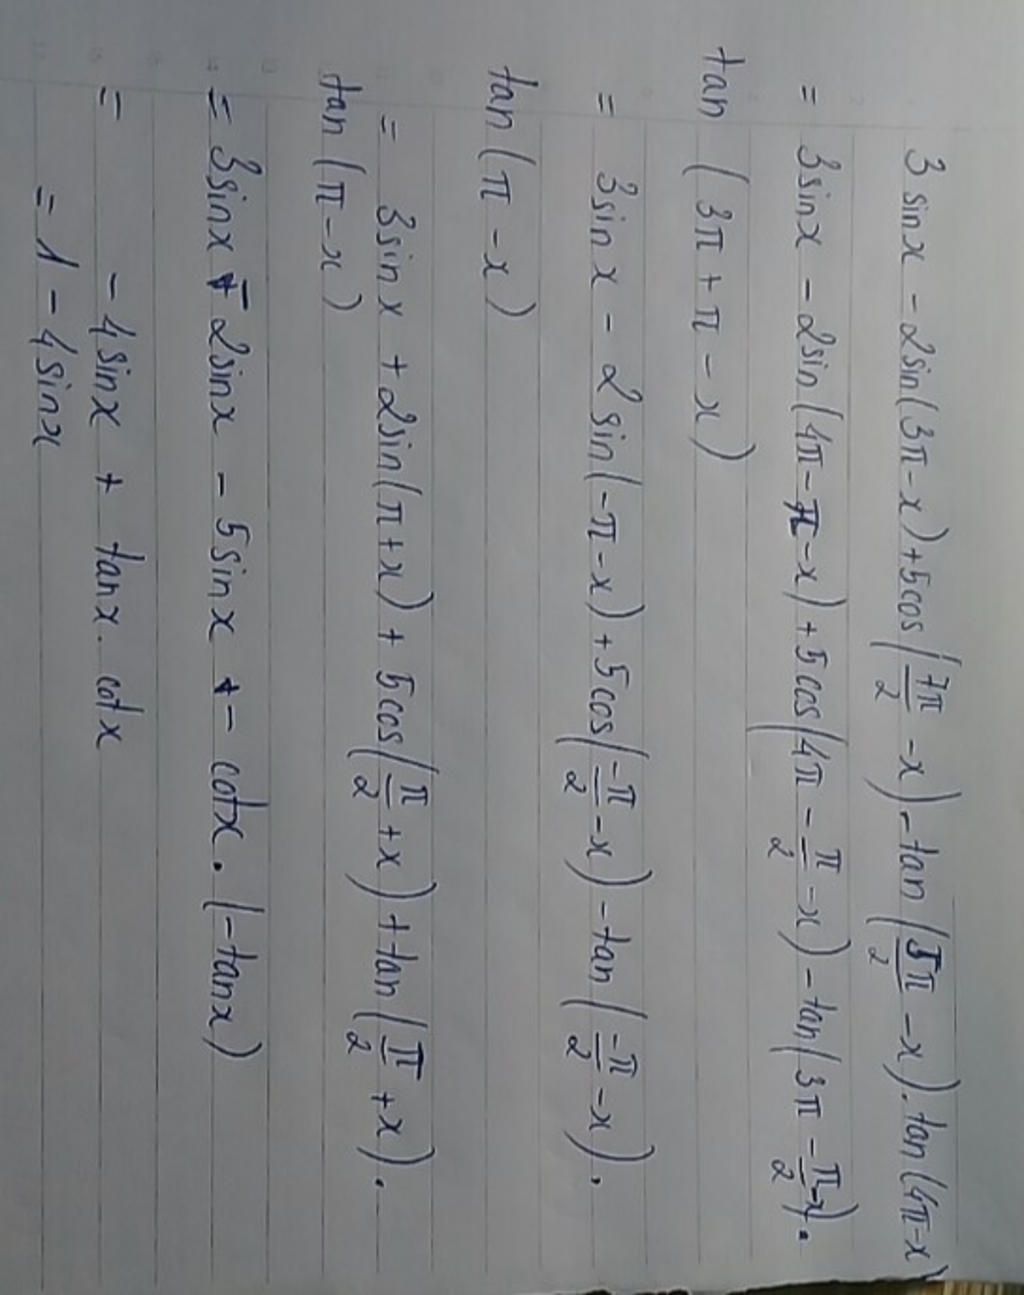 3 sinx - 2sin(3π - x) + 5cos(7π/2 - x) - tan(5π/2 - x). tan(4π-x)
= 3sinx - 2sin(4π - π - x) + 5cos(4π - π/2 - x) - tan(3π - π/2 - x).
tan (3π + π - x)
= 3sinx - 2sin(-π - x) + 5cos(-π/2 - x) - tan(-π/2 - x).
tan (π - x)
= 3sinx + 2sin(π + x) + 5cos(π/2 + x) + tan(π/2 + x).
tan (π - x)
= 3sinx - 2sinx - 5sinx - cotx. (-tanx)
= - 4sinx + tanx. cotx
= 1 - 4sinx